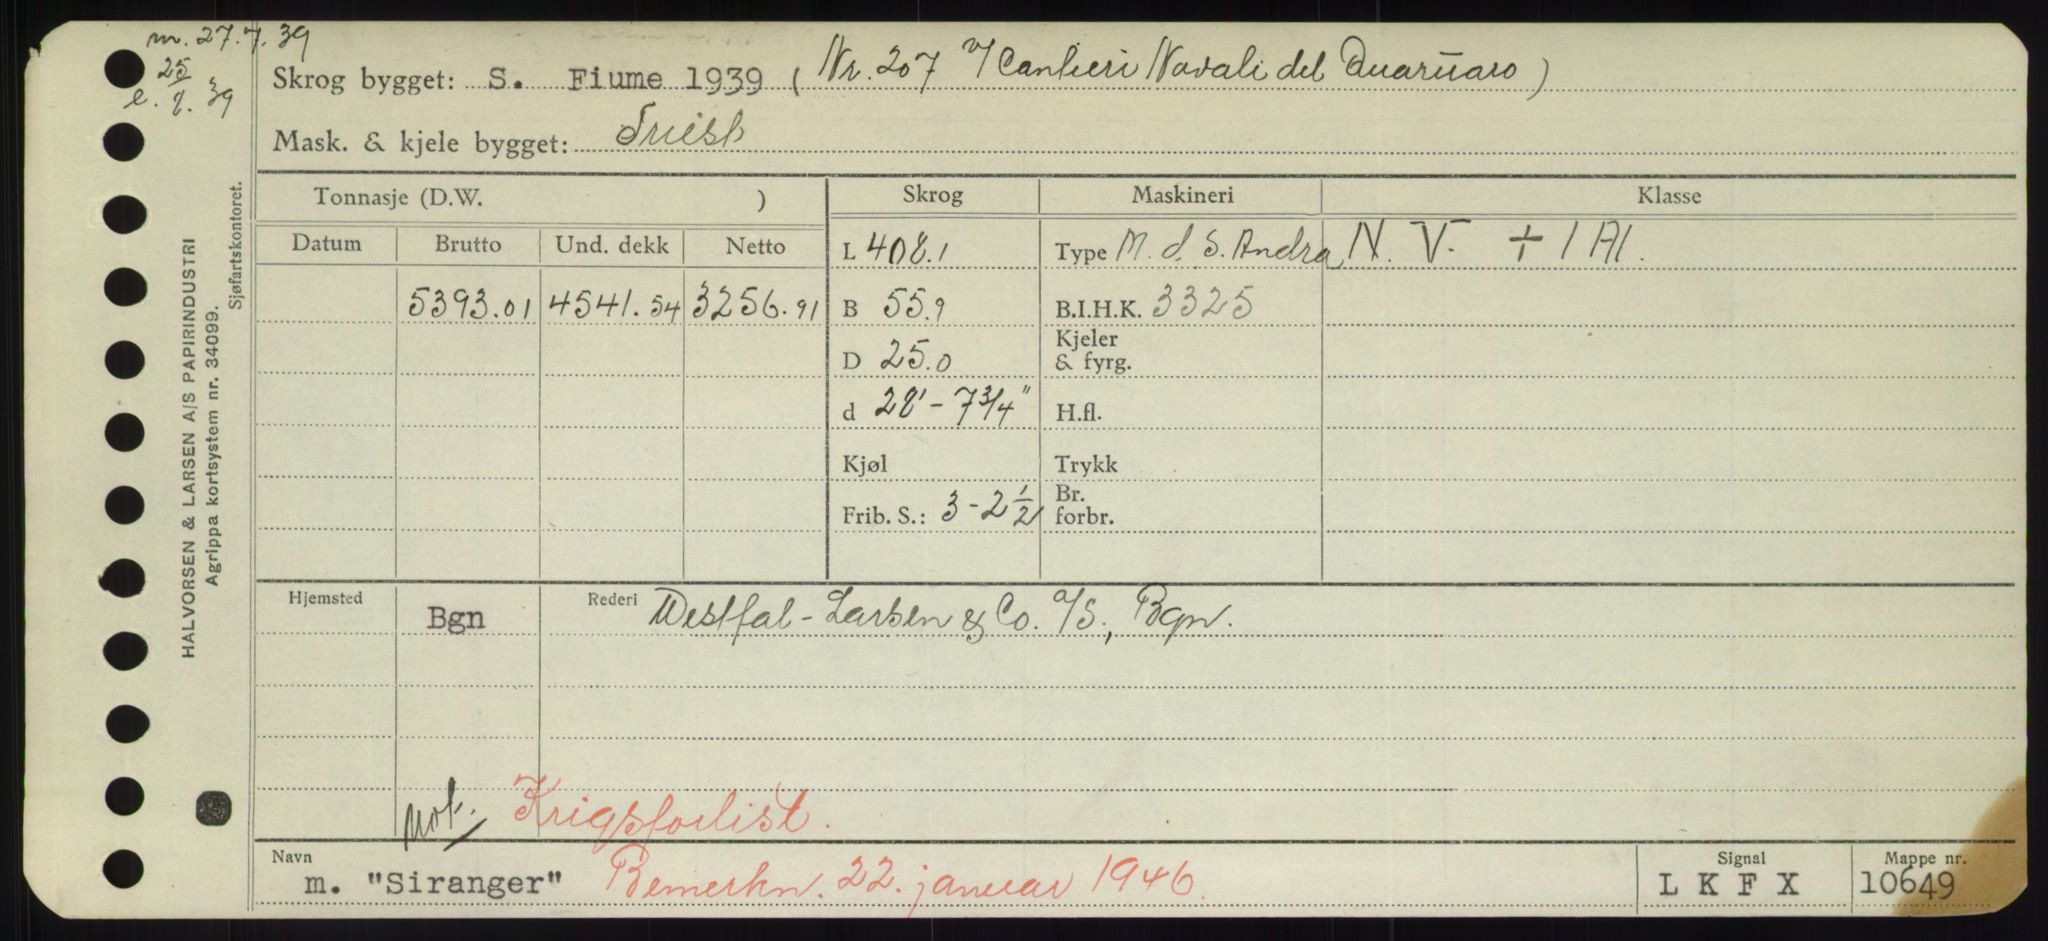 m. 27.7.39
25
e. 8. 39
Skrog bygget: S. Fiume 1939 ( Nr. 207 v/ Cantieri Navali del Quarnaro )
Mask. & kjele bygget: Triest
Tonnasje (D.W. ) Skrog Maskineri Klasse
Datum Brutto Und. dekk Netto L 408.1 Type M. d. S. Andrea N. V. + 1 A1.
5393.01 4541.54 3256.91 B 55.9 B.I.H.K. 3325
D 25.0 Kjeler & fyrg.
d 28' - 7 3/4" H.fl.
Kjøl Trykk
Frib. S.: 3 - 2 1/2 Br. forbr.
Hjemsted Bgn Rederi Westfal-Larsen & Co. A/S, Bgn.
not. Krigsforlist.
Navn m. "Siranger" Bemerkn. 22. januar 1946. Signal L K F X Mappe nr. 10649
HALVORSEN & LARSEN A/S PAPIRINDUSTRI
Agrippa kortsystem nr. 34099.
Sjøfartskontoret.